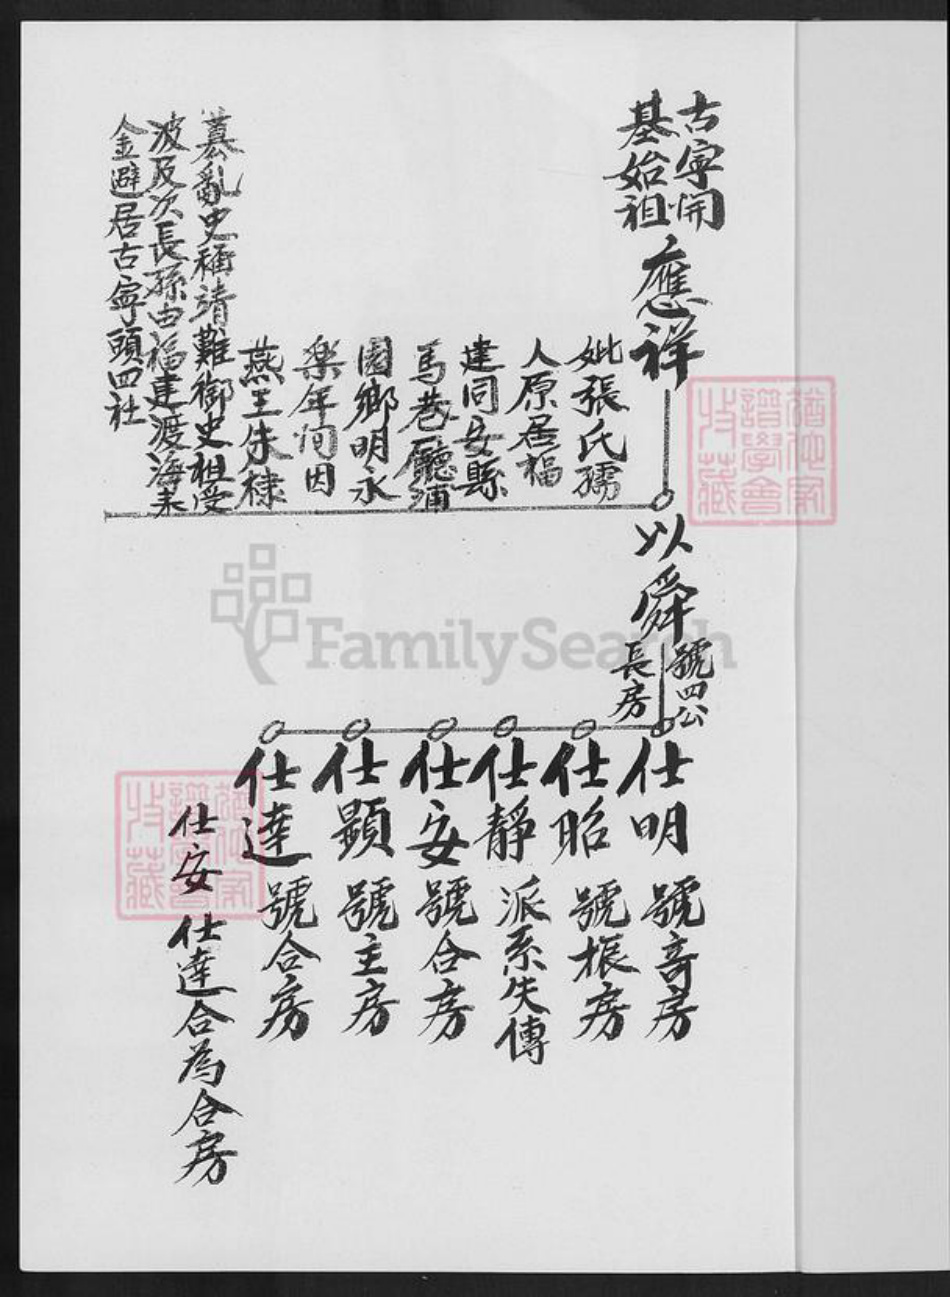 古寧開
基始祖
應祥
妣張氏孺
人原居福
建同安縣
馬巷廳浦
園鄉明永
樂年间因
燕王朱棣
篡亂史稱靖難御史祖受
波及次長孫由福建渡海來
金避居古寧頭四社
以舜
號四公
長房
仕明 號奇房
仕昭 號振房
仕靜 派系失傳
仕安 號合房
仕顯 號主房
仕達 號合房
仕安 仕達合為合房
FamilySearch
譜學會
收藏
譜學會
收藏